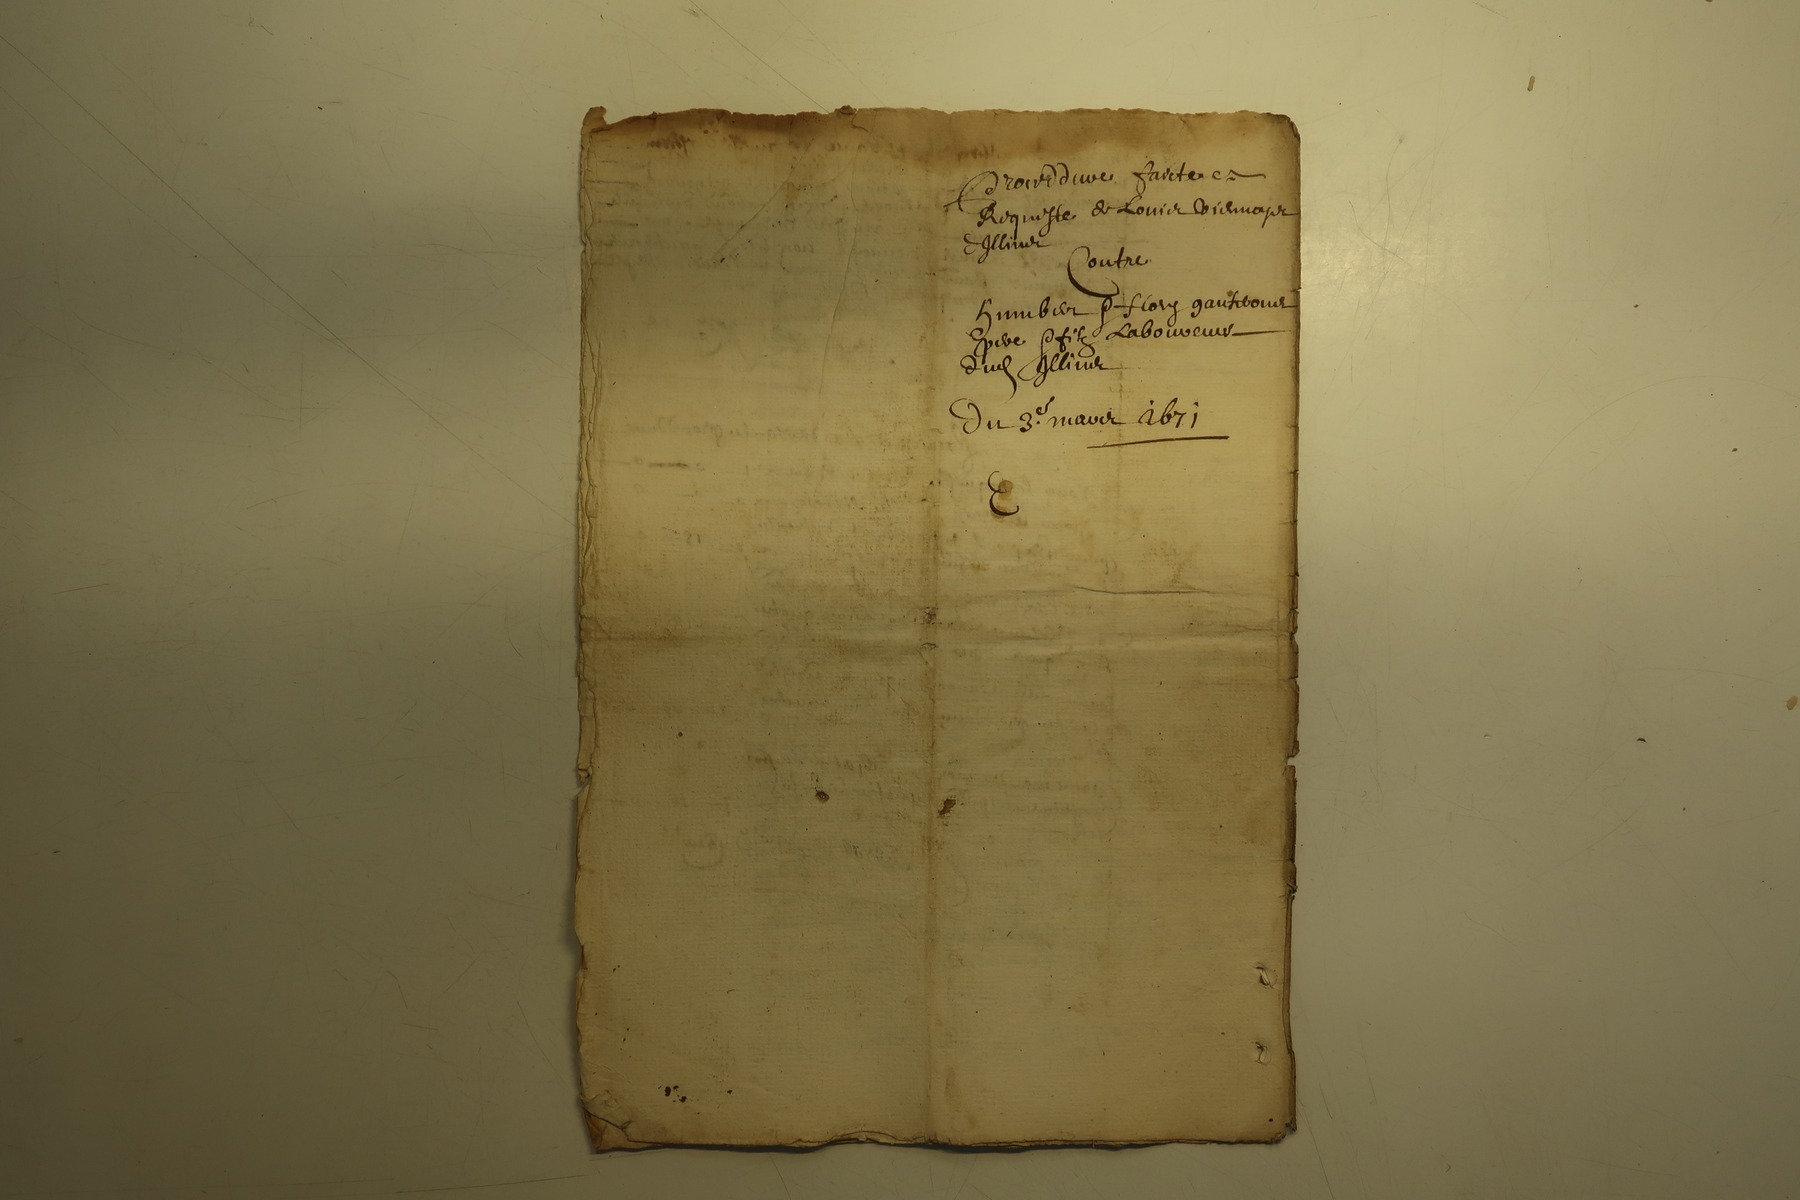 Proceddure faicte es
Requeste de Louis viennaye
dIllins
Contre
humbert & fleury gautheron
pere & filz Laboureurs
dud Illins
Du 3.e mars 1671
E